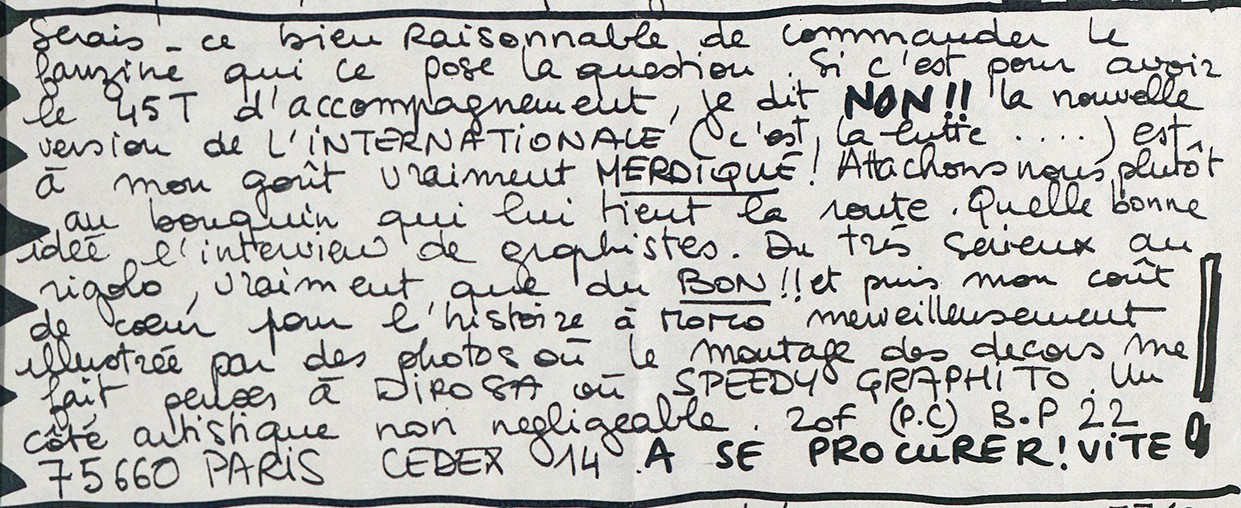 Serais-ce bien Raisonnable de commander le
fanzine qui ce pose la question. Si c'est pour avoir
le 45T d'accompagnement, je dit NON!! la nouvelle
version de L'INTERNATIONALE (c'est la lutte ....) est
à mon goût vraiment MERDIQUE! Attachons nous plutôt
au bouquin qui lui tient la route. Quelle bonne
idée l'interview de graphistes. Du très serieux au
rigolo, vraiment que du BON!! et puis mon coût
de coeur pour l'histoire à MOMO merveilleusement
illustrée par des photos où le montage des decors me
fait penser à DiROSA où SPEEDY GRAPHITO. Un
côté artistique non negligeable. 20f (P.C) B.P 22
75660 PARIS CEDEX 14. A SE PROCURER! ViTE!